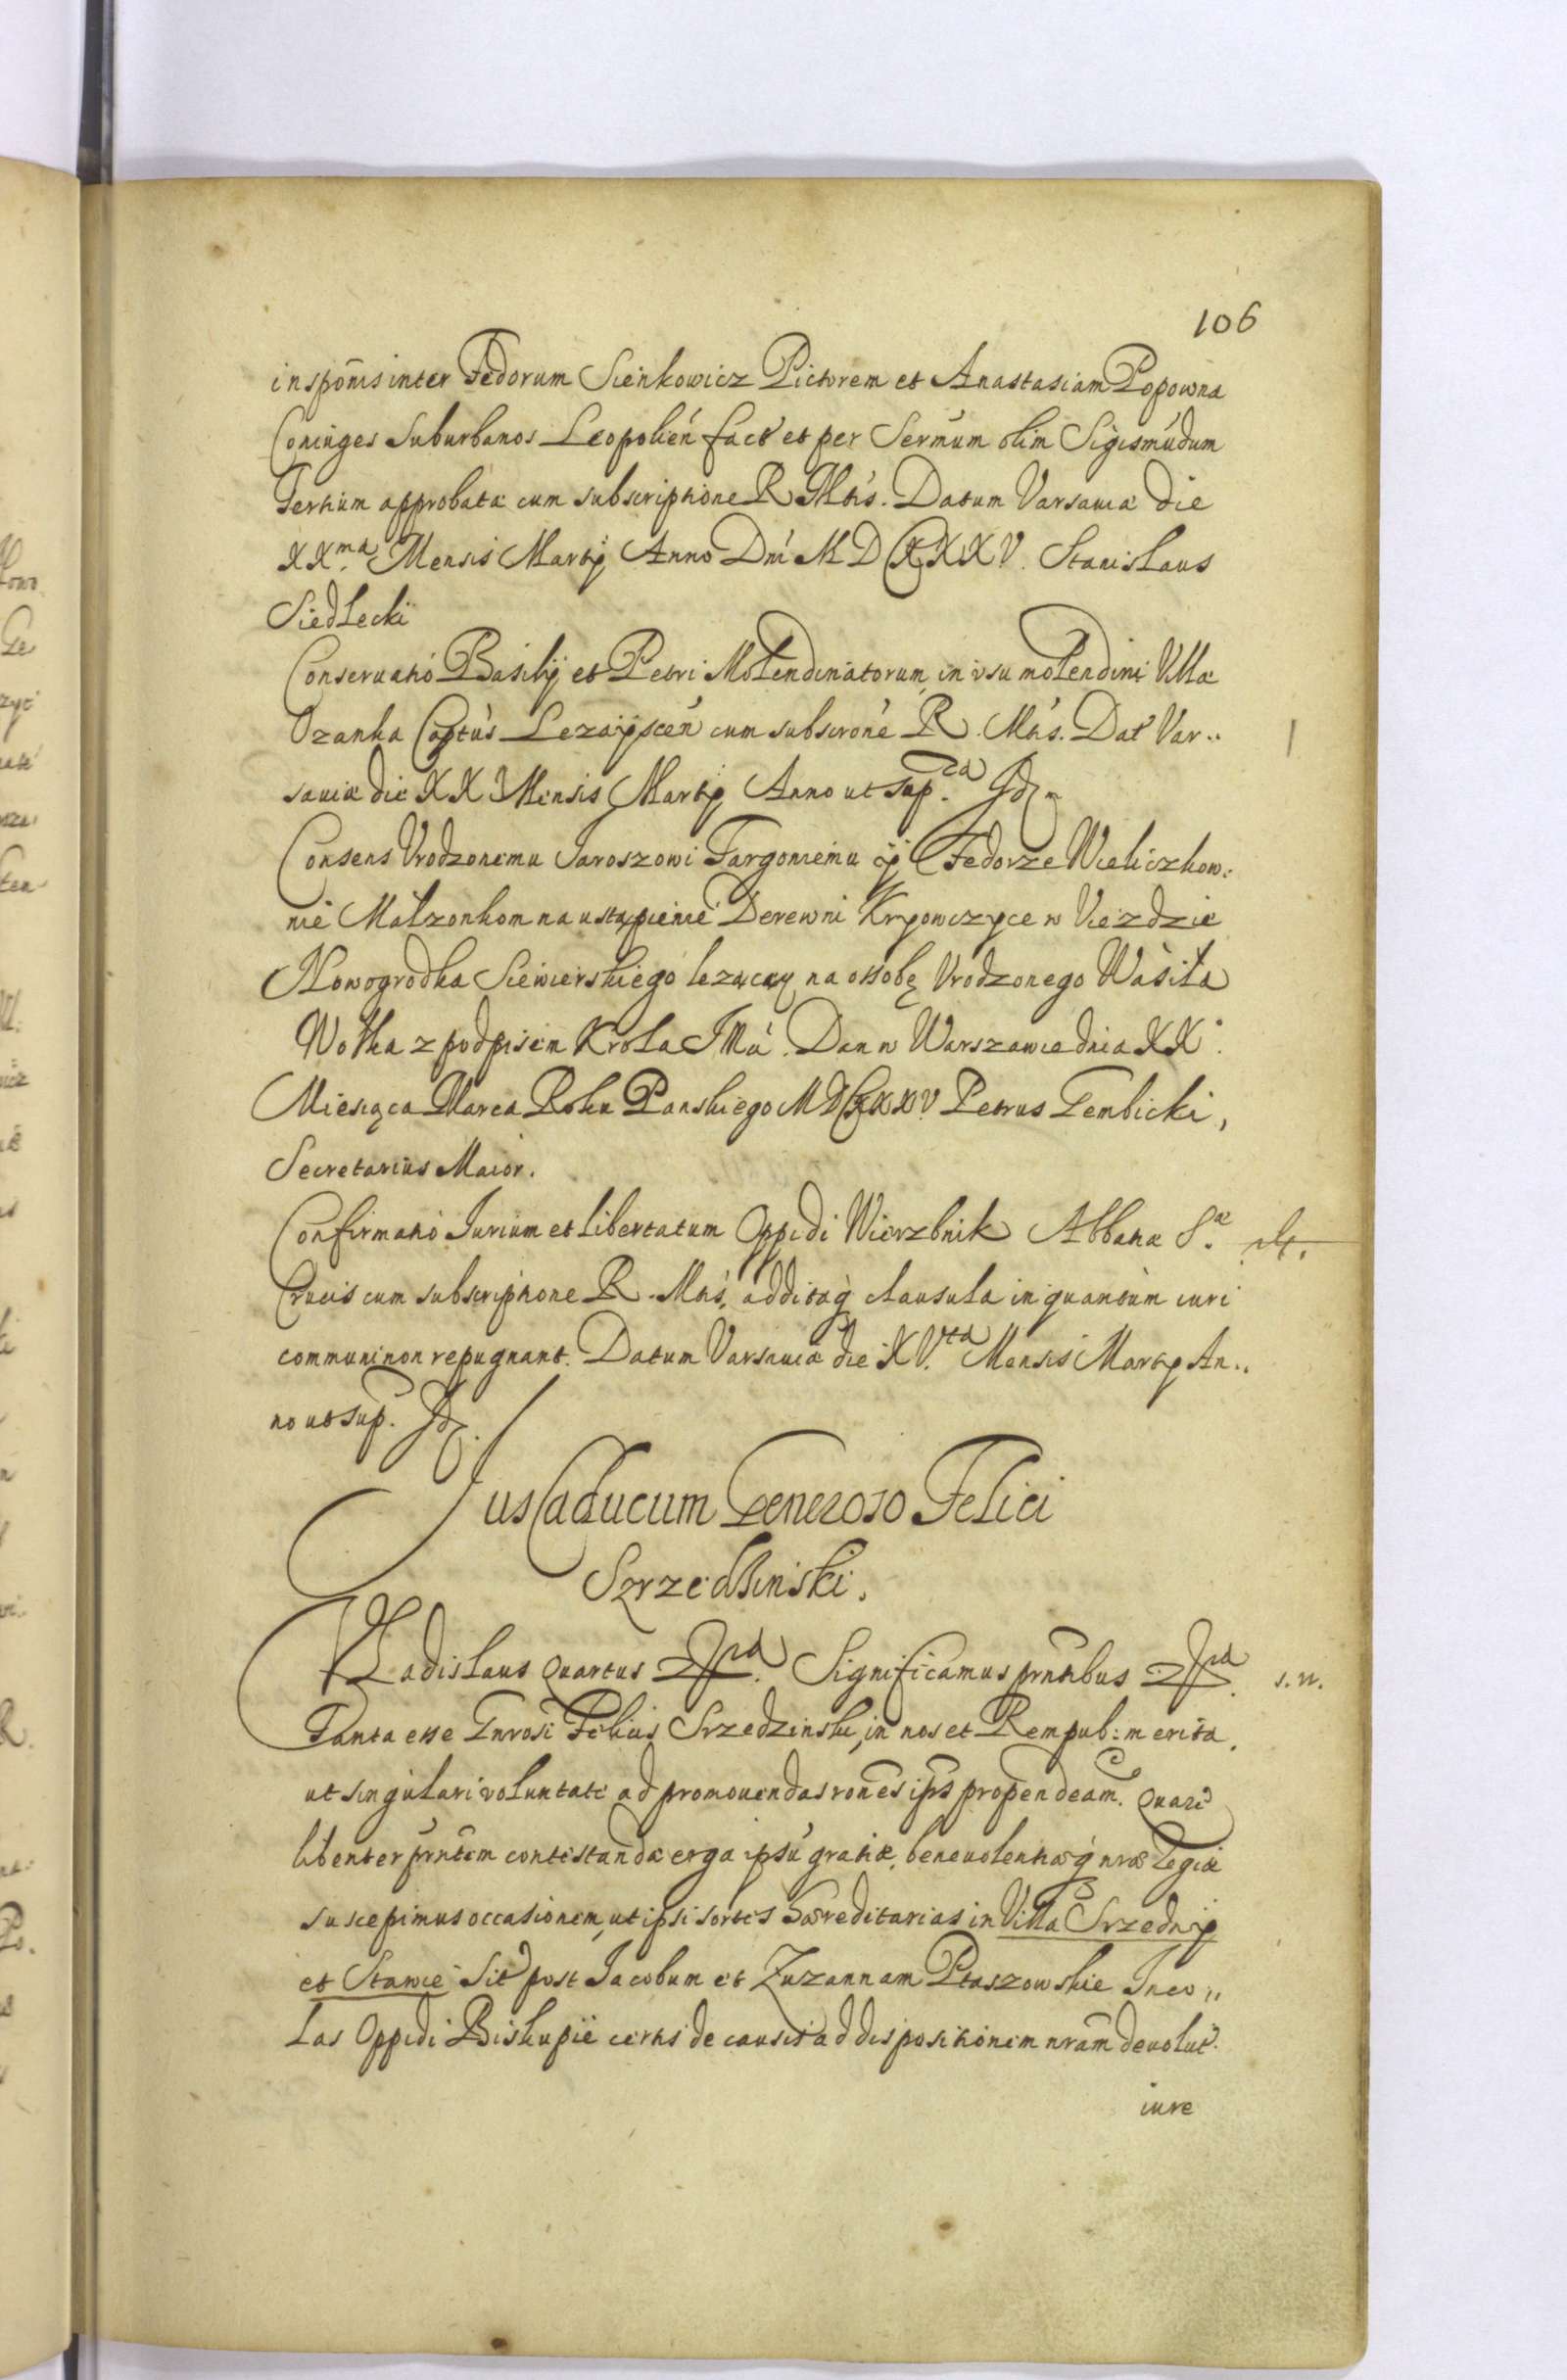 106
inspōnis inter Fedorum Sieńkowicz Pictorem et Anastasiam Popowna
Coniuges Suburbanos Leopolień fact et per Sermūm olim Sigismūdum
Tertium approbatæ cum subscriptione R Mtis. Datum Varsauiæ die
XXma. Mensis Martij Anno Dnī MDCXXXV. Stanislaus
Siedlecki
Conseruatio Basilij et Petri Molendinatorum in vsu molendini Villæ
Ozanka Captūs Lezayscen cum subscrōne R. Mtis. Dat Var..
sauiæ die XX Mensis Martij Anno ut sup. Id
Consens Vrodzonemu Jaroszowi Targoniemu y Fedorze Wieliczkow.
nie Małzonkom na ustąpienie Derewni Krypowczyce w Uiezdzie
Nowogrodka Siewierskiego lezącey na ossobę Vrodzonego Wasiła
Wołka z podpisem Krola JMći. Dan w Warszawie dnia XX.
Miesiąca Marca Roku Panskiego MDCXXXV Petrus Gembicki,
Secretarius Maior.
Confirmatio Jurium et libertatum Oppidi Wierzbnik Abbatiæ S.æ
Crucis cum subscriptione R. Mtis, additaq clausula in quantum iuri
communi non repugnant. Datum Varsauiæ die XV.ta Mensis Martij An..
no ut sup. Id.
Jus Caducum Generoso Felici
Srzedzinski.
Vladislaus Quartus Significamus prntibus s. n.
Tanta esse Gnrosi Felicis Srzedzinski, in nos et Rempub: merita,
ut singulari voluntate ad promouendas rones ipsˢ propendeam. Quare
libenter prntem contestandæ erga ipsū gratiæ, benevolentiæq nræ Regiæ
suscepimus occasionem, ut ipsi sortes hæreditarias in Villa Srzedniy
et Stawie sit post Jacobum et Zuzannam Ptaszowskie Inco,,
las Oppidi Biskupie certis de causis ad dispositionem nram deuolut
iure